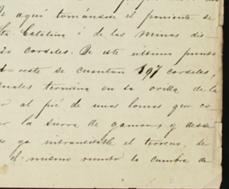 De aquí tomándose el poniente de
Sta Catalina i de las Minas dis
cordeles. De este último punto
oeste se cuentan 197 cordeles,
cuales termina en la orilla de la
al pié de unas lomas que es
la sierra de gamon, y desde
ya intransitable el terreno, se
el mismo rumbo la cumbre de